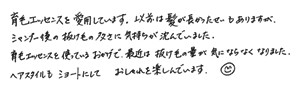 育毛エッセンスを愛用しています。以前は髪が長かったせいもありますが、
シャンプー後の抜け毛の多さに気持ちが沈んでいました。
育毛エッセンスを使っているおかげで、最近は抜け毛の量が気にならなくなりました。
ヘアスタイルもショートにして おしゃれを楽しんでいます。